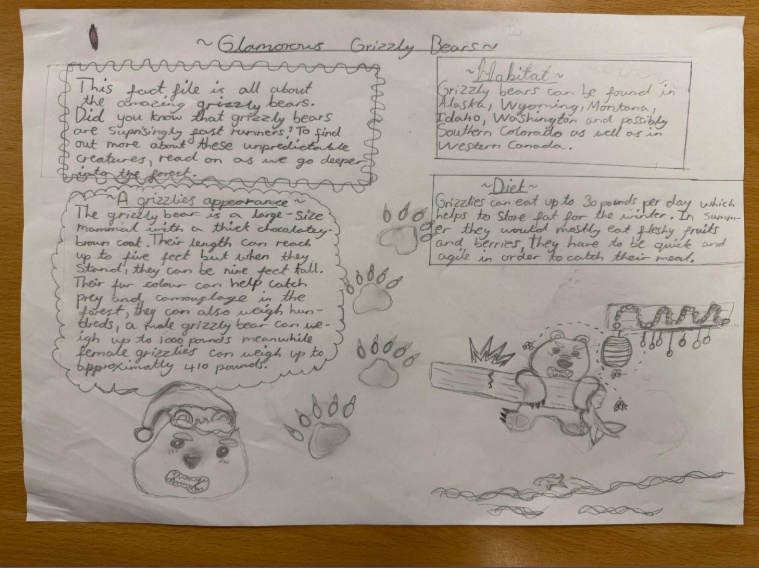 ~Glamorous Grizzly Bears~
This fact file is all about
the amazing grizzly bears.
Did you know that grizzly bears
are suprisingly fast runners? To find
out more about these unpredictable
creatures, read on as we go deeper
into the forest.
~A grizzlies appearance~
The grizzly bear is a large-size
mammal with a thick chocolatey-
brown coat. Their length can reach
up to five feet but when they
stand, they can be nine feet tall.
Their fur colour can help catch
prey and camouflage in the
forest, they can also weigh hun-
dreds, a male grizzly bear can we-
igh up to 1000 pounds meanwhile
female grizzlies can weigh up to
approximatly 410 pounds.
~Habitat~
Grizzly bears can be found in
Alaska, Wyoming, Montana,
Idaho, Washington and possibly
Southern Colorado as well as in
Western Canada.
~Diet~
Grizzlies can eat up to 30 pounds per day which
helps to store fat for the winter. In summ-
er they would mostly eat fleshy fruits
and berries, they have to be quick and
agile in order to catch their meal.